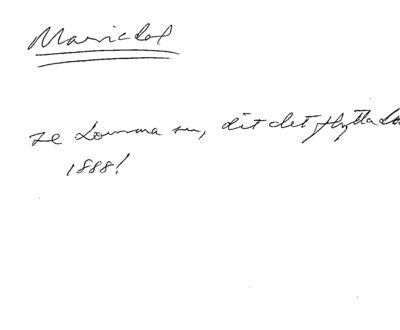 Mariedal
se Lomma sn, dit det flytta
1888!